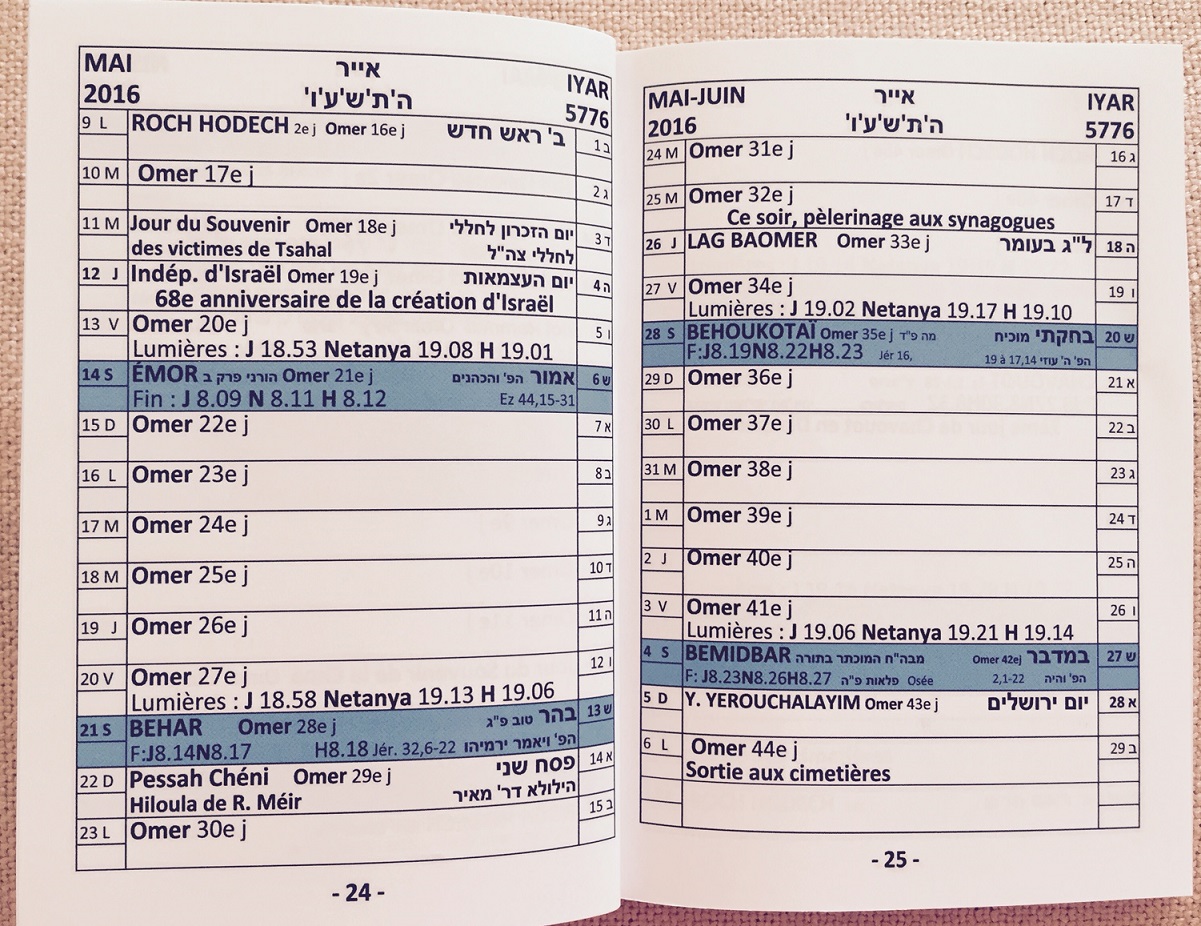 MAI אייר IYAR
2016 ה'ת'ש'ע'ו' 5776
9 L ROCH HODECH 2e j Omer 16e j ב' ראש חדש ב 1
10 M Omer 17e j ג 2
11 M Jour du Souvenir Omer 18e j יום הזכרון לחללי ד 3
des victimes de Tsahal לחללי צה"ל
12 J Indép. d'Israël Omer 19e j יום העצמאות ה 4
68e anniversaire de la création d'Israël
13 V Omer 20e j ו 5
Lumières : J 18.53 Netanya 19.08 H 19.01
14 S ÉMOR הורני פרק ב Omer 21e j אמור הפ' והכהנים ש 6
Fin : J 8.09 N 8.11 H 8.12 Ez 44,15-31
15 D Omer 22e j א 7
16 L Omer 23e j ב 8
17 M Omer 24e j ג 9
18 M Omer 25e j ד 10
19 J Omer 26e j ה 11
20 V Omer 27e j ו 12
Lumières : J 18.58 Netanya 19.13 H 19.06
21 S BEHAR Omer 28e j בהר טוב פ"ג ש 13
F:J8.14N8.17 H8.18 Jér. 32,6-22 הפ' ויאמר ירמיהו
22 D Pessah Chéni Omer 29e j פסח שני א 14
Hiloula de R. Méir הילולא דר' מאיר
23 L Omer 30e j ב 15
- 24 -
MAI-JUIN אייר IYAR
2016 ה'ת'ש'ע'ו' 5776
24 M Omer 31e j ג 16
25 M Omer 32e j ד 17
Ce soir, pèlerinage aux synagogues
26 J LAG BAOMER Omer 33e j ל"ג בעומר ה 18
27 V Omer 34e j ו 19
Lumières : J 19.02 Netanya 19.17 H 19.10
28 S BEHOUKOTAÏ Omer 35e j מה פ"ד בחקתי מוכיח ש 20
F:J8.19N8.22H8.23 Jér 16, 19 à 17,14 הפ' ה' עוזי
29 D Omer 36e j א 21
30 L Omer 37e j ב 22
31 M Omer 38e j ג 23
1 M Omer 39e j ד 24
2 J Omer 40e j ה 25
3 V Omer 41e j ו 26
Lumières : J 19.06 Netanya 19.21 H 19.14
4 S BEMIDBAR מבה"ח המוכתר בתורה Omer 42ej במדבר ש 27
F: J8.23N8.26H8.27 פלאות פ"ה Osée 2,1-22 הפ' והיה
5 D Y. YEROUCHALAYIM Omer 43e j יום ירושלים א 28
6 L Omer 44e j ב 29
Sortie aux cimetières
- 25 -